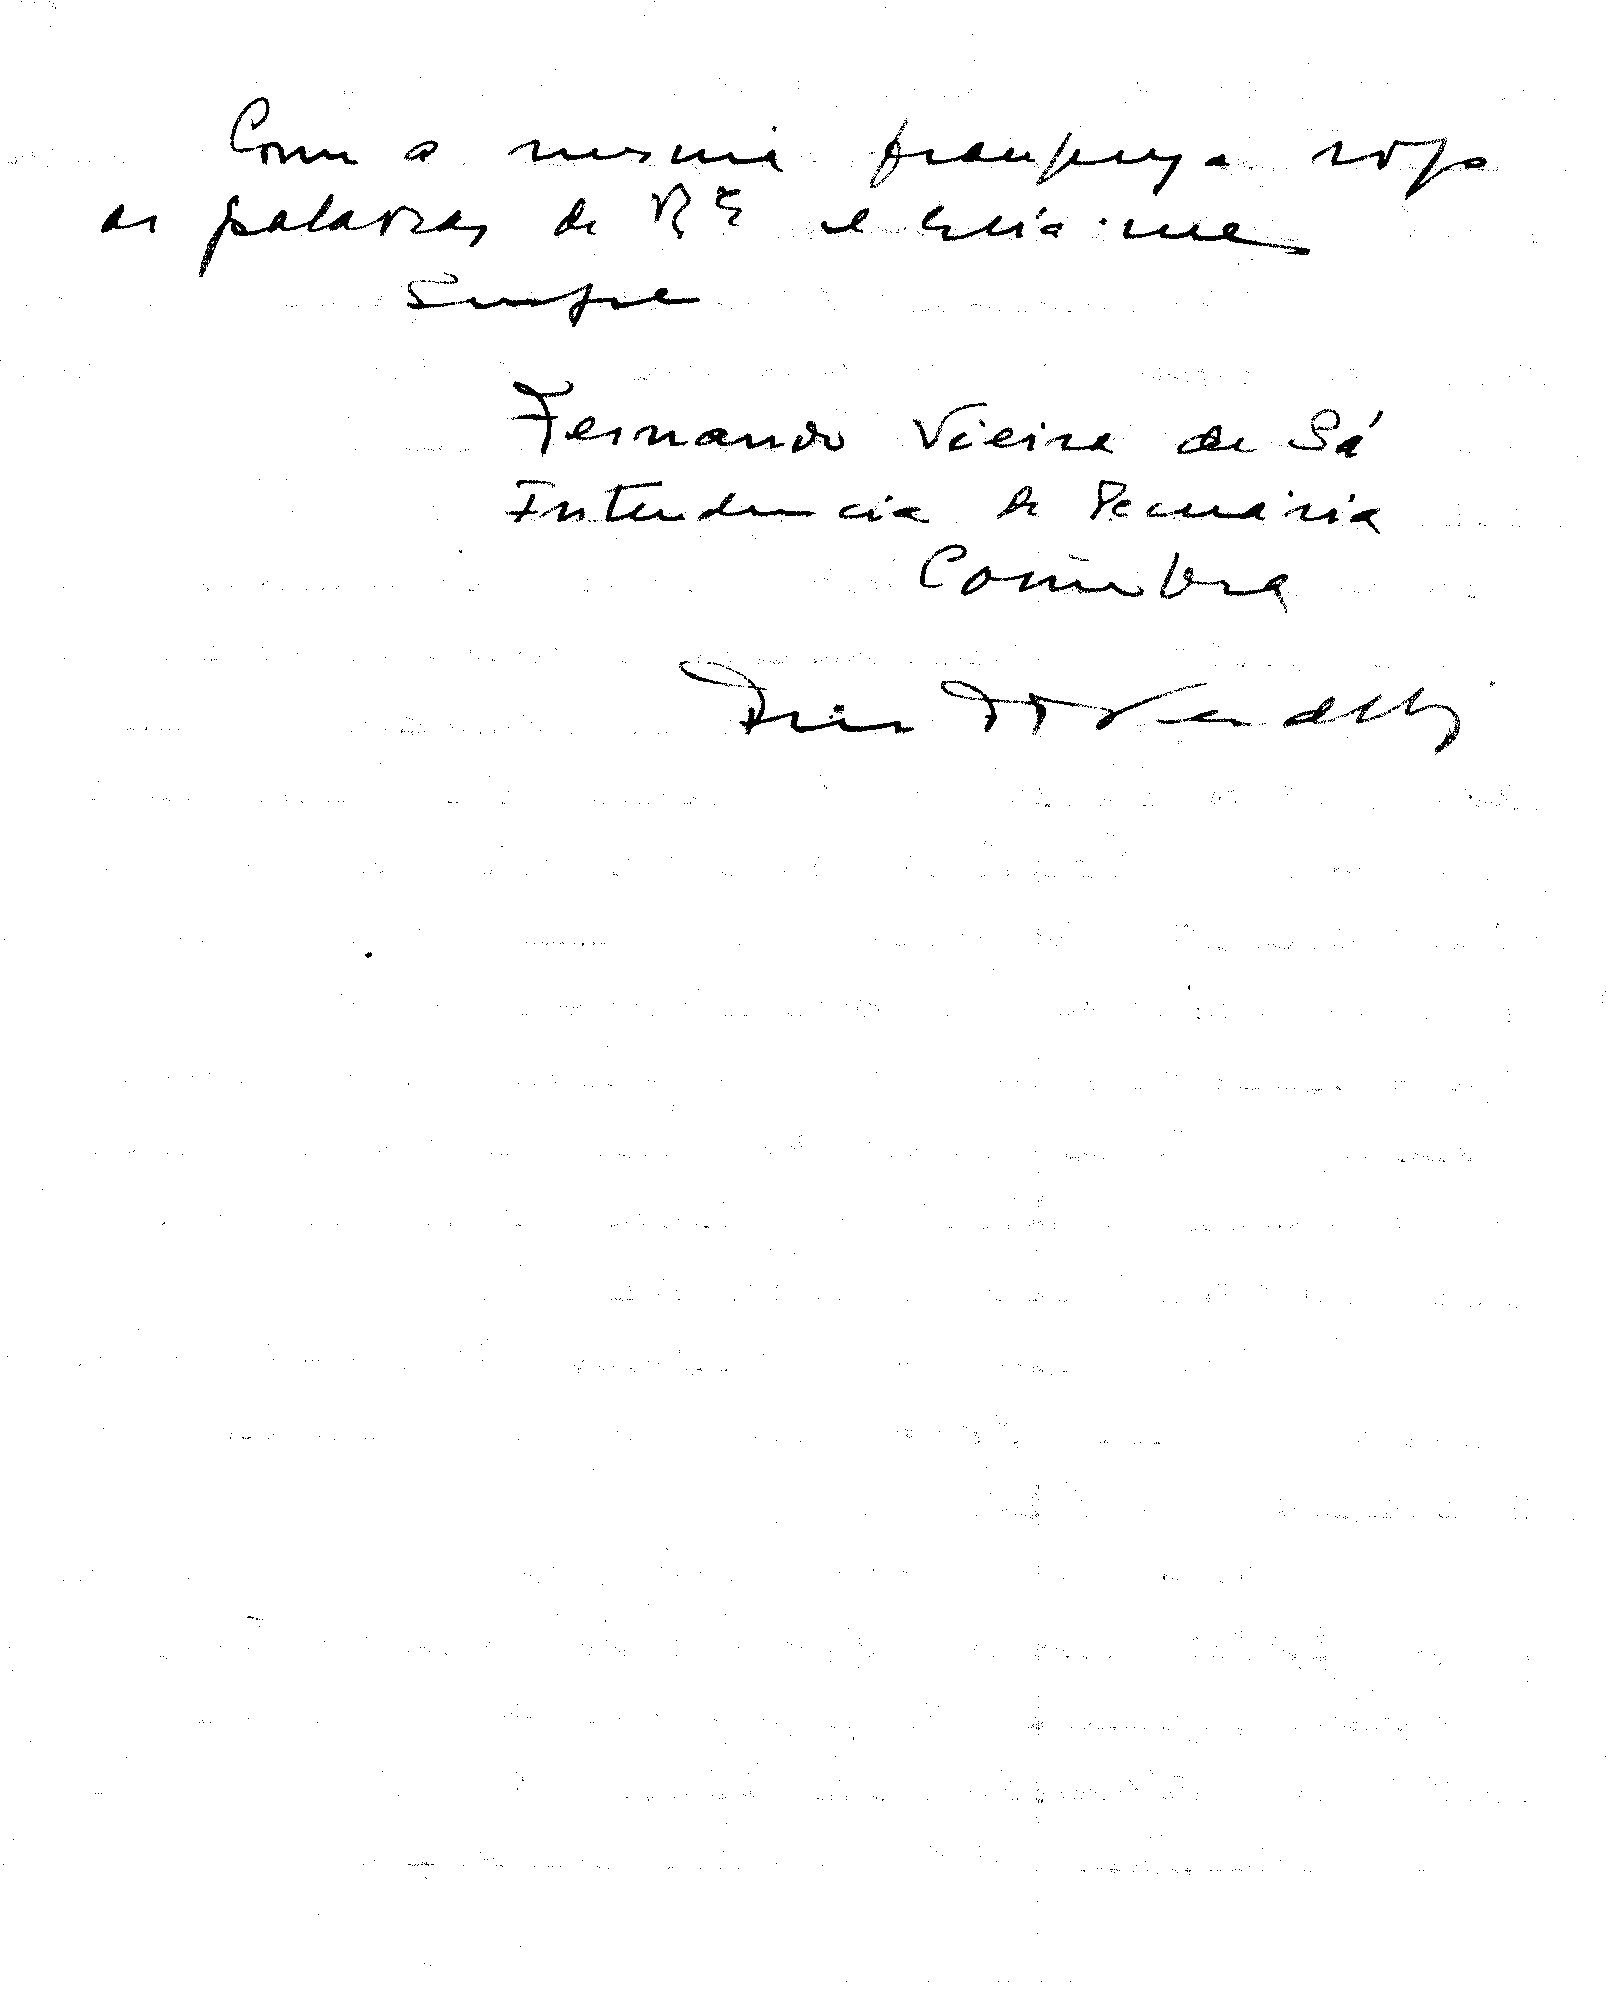 Com a mesma franqueza rogo
as palavras de V. Ex e creia-me
Sempre
Fernando Vieira de Sá
Intendencia de Pecuária
Coimbra